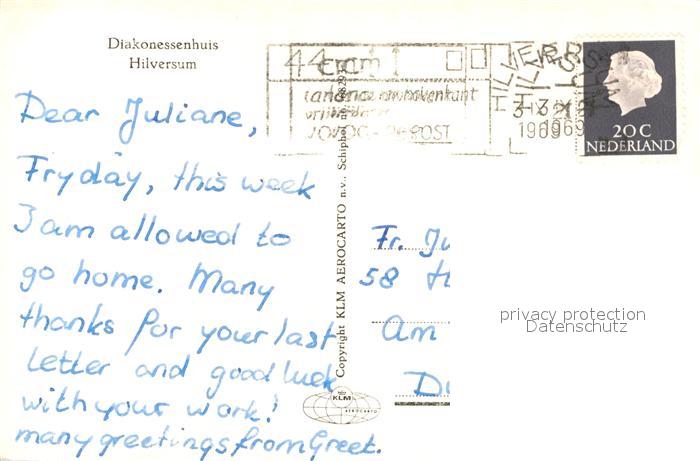 Diakonessenhuis
Hilversum
Dear Juliane,
Fryday, this week
I am allowed to
go home. Many
thanks for your last
letter and good luck
with your work!
many greetings from Greet.
Copyright KLM AEROCARTO n.v., Schiphol
KLM
AEROCARTO
HILVERSUM
1969
20 C
NEDERLAND
Fr. Ju
58
Am
D
privacy protection
Datenschutz